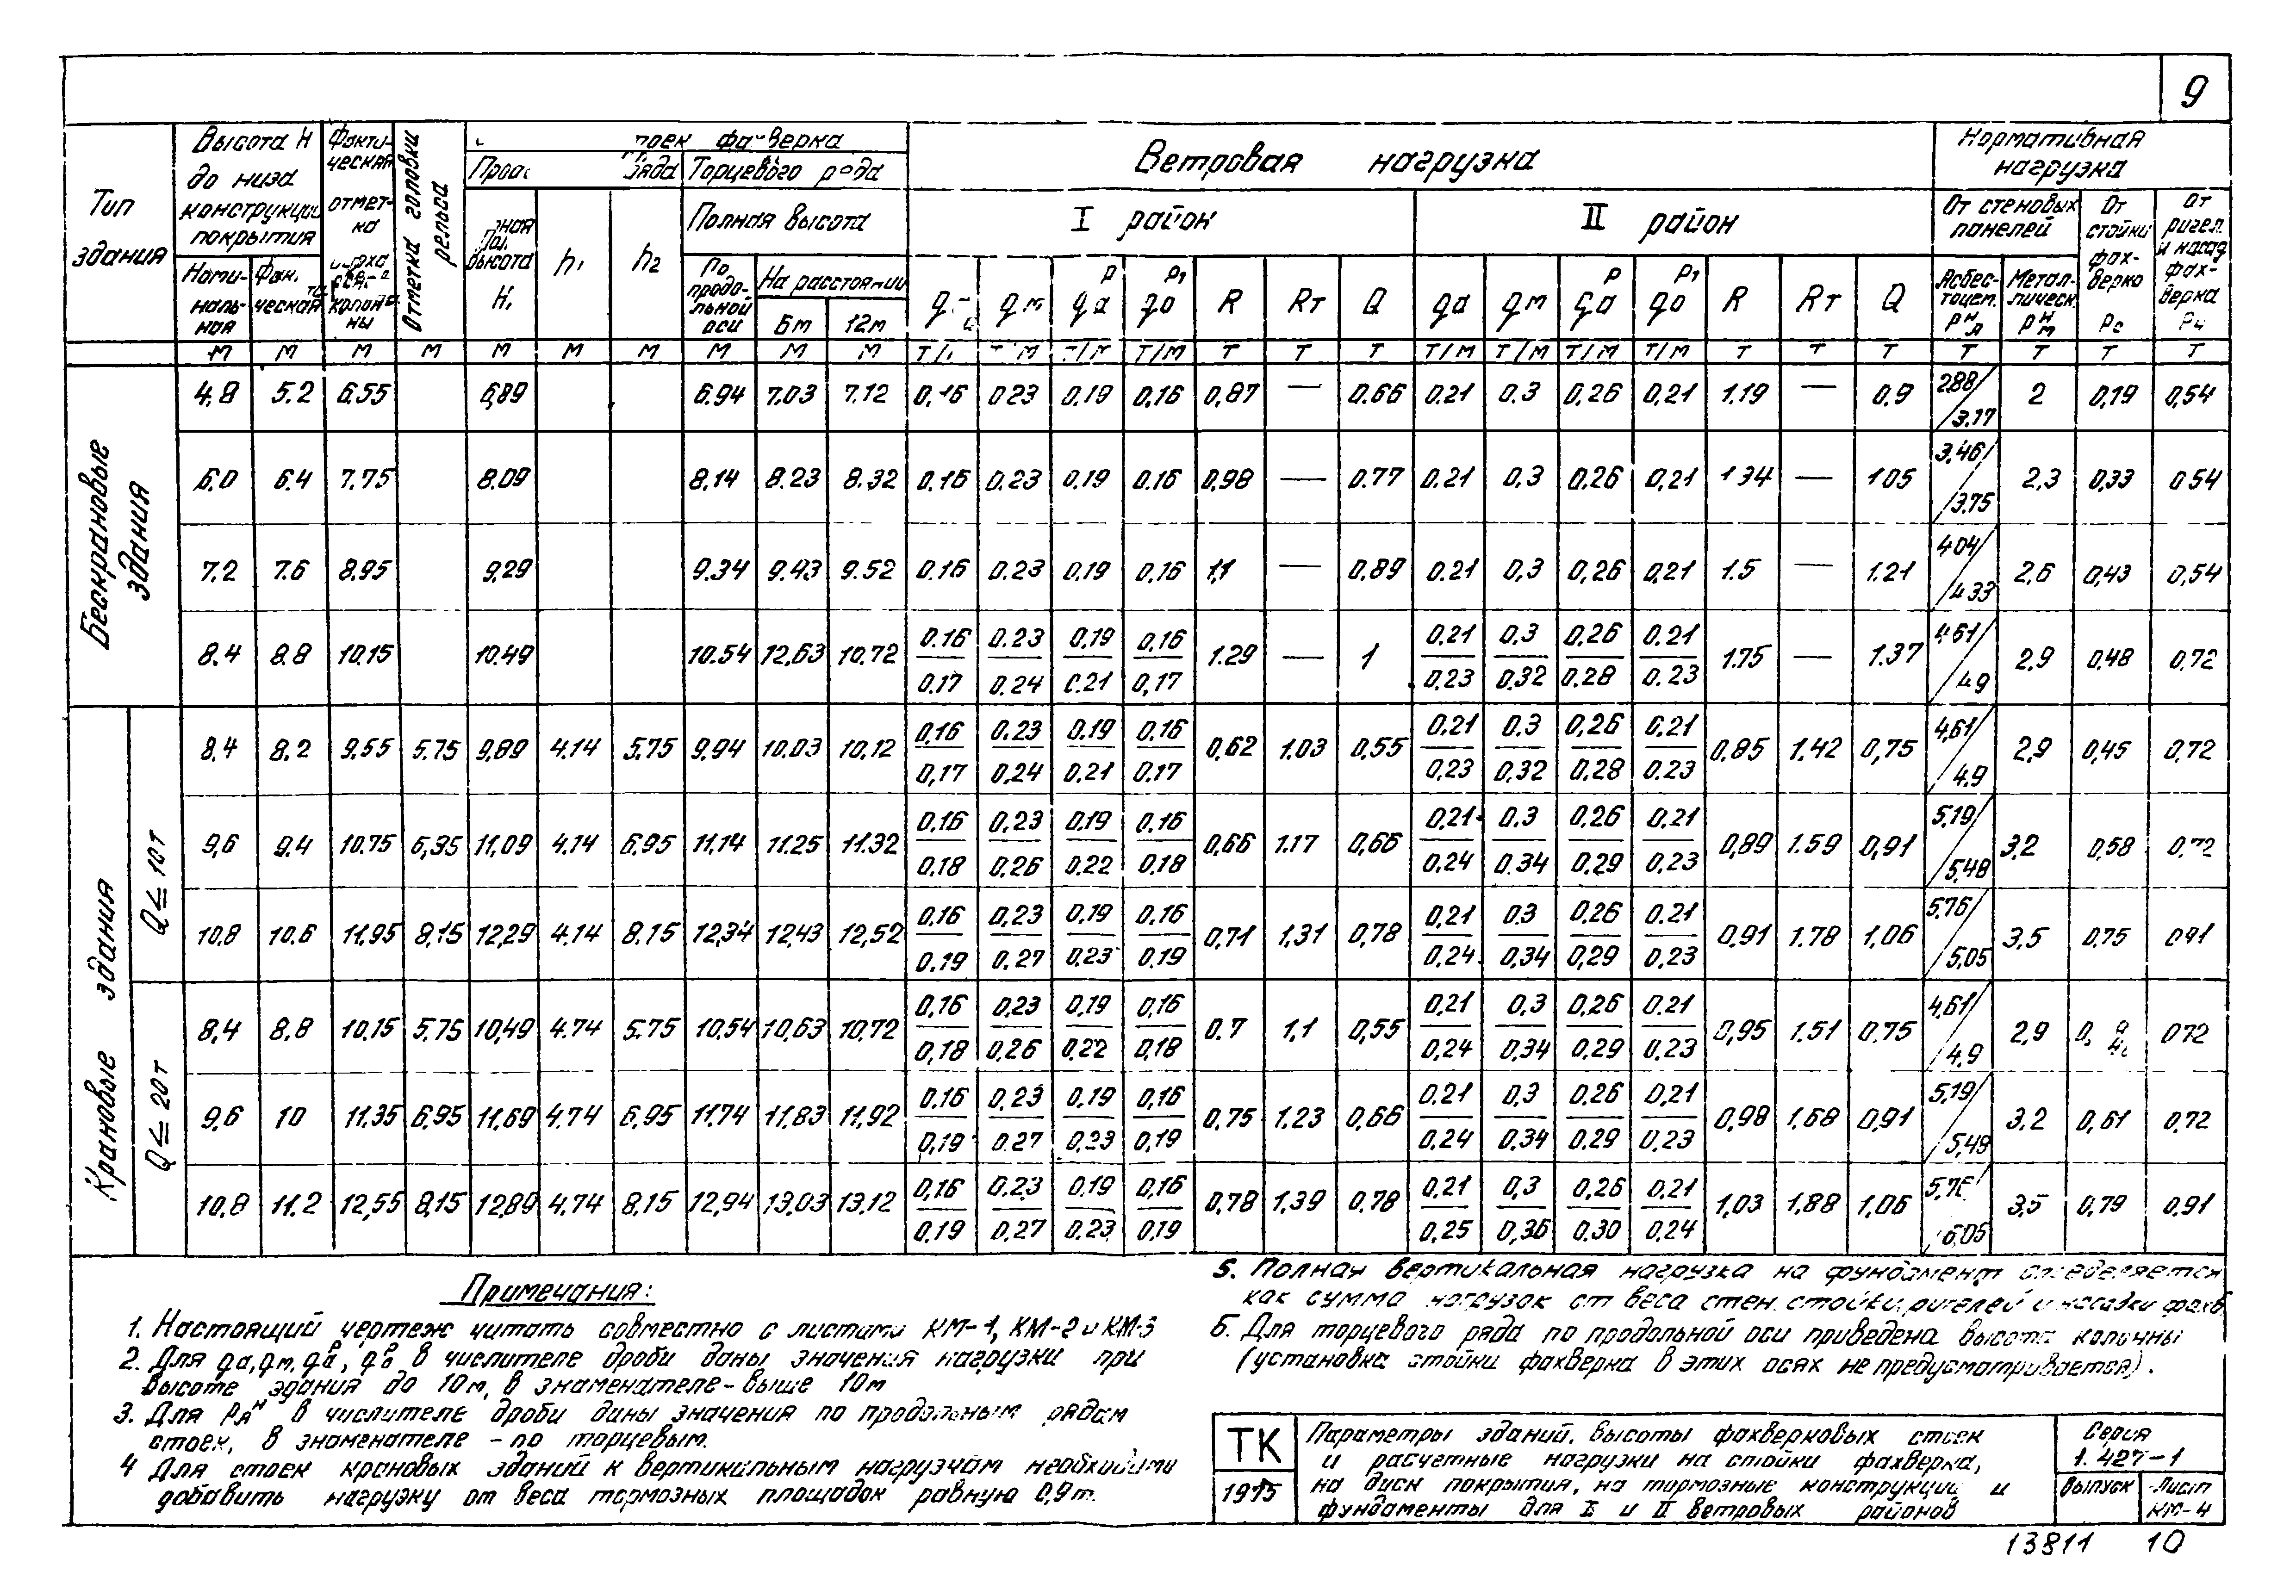 9
Тип здания
Высота H до низа конструкции покрытия
Номинальная
Фактическая
Фактическая отметка верха колонны
Отметка головки рельса
стоек фахверка
ряда
Торцевого ряда
высота H₁
h₁
h₂
Полная высота
По продольной оси
На расстоянии
6м
12м
Ветровая нагрузка
I район
II район
qм qа^р q₀^р₁ R Rт Q qа qм qа^р q₀^р₁ R Rт Q
Нормативная нагрузка
От стеновых панелей
Асбестоцем. Pᴴᴀ
Металлическ. Pᴴм
От стойки фахверка Pс
От ригел. и насад. фахверка
м м м м м м м м м м т/м т/м т/м т т т т/м т/м т/м т/м т т т т т т т
Бескрановые здания
4.8 5.2 6.55 6,89 6.94 7.03 7.12 0,16 0.23 0.19 0.16 0,87 — 0.66 0.21 0.3 0,26 0,21 1.19 — 0.9 2.88/3.17 2 0,19 0,54
6.0 6.4 7.75 8.09 8.14 8.23 8.32 0.16 0.23 0.19 0.16 0,98 — 0.77 0.21 0,3 0.26 0,21 1.34 — 1.05 3,46/3.75 2,3 0,33 0.54
7.2 7.6 8.95 9.29 9.34 9.43 9.52 0.16 0.23 0.19 0.16 1,1 — 0,89 0.21 0,3 0,26 0,21 1.5 — 1.21 4.04/4.33 2,6 0,43 0,54
8.4 8.8 10.15 10.49 10.54 12,63 10.72 0.16/0.17 0.23/0.24 0,19/0.21 0,16/0,17 1.29 — 1 0.21/0.23 0.3/0.32 0,26/0.28 0.21/0.23 1.75 — 1.37 4.61/4.9 2,9 0,48 0,72
Крановые здания
Q ≤ 10т
8,4 8.2 9.55 5.75 9,89 4.14 5.75 9.94 10.03 10.12 0,16/0,17 0.23/0.24 0.19/0.21 0.16/0.17 0,62 1.03 0,55 0.21/0,23 0.3/0.32 0,26/0.28 0.21/0.23 0,85 1.42 0,75 4,61/4.9 2,9 0,45 0,72
9,6 9.4 10.75 6,35 11,09 4.14 6.95 11,14 11.25 11.32 0.16/0.18 0,23/0,26 0,19/0.22 0.16/0.18 0,66 1.17 0,66 0,21/0,24 0.3/0.34 0,26/0.29 0.21/0,23 0,89 1.59 0,91 5,19/5,48 3,2 0,58 0.72
10,8 10.6 11,95 8,15 12,29 4.14 8.15 12,34 12,43 12,52 0.16/0.19 0,23/0.27 0,19/0,23 0.16/0.19 0,71 1,31 0,78 0,21/0.24 0.3/0,34 0,26/0,29 0.21/0,23 0,91 1.78 1,06 5.76/5,05 3,5 0,75 0.91
Q ≤ 20т
8,4 8.8 10.15 5,75 10,49 4.74 5.75 10,54 10,63 10,72 0,16/0,18 0.23/0.26 0,19/0,22 0,16/0,18 0.7 1,1 0,55 0,21/0,24 0,3/0,34 0,26/0.29 0.21/0.23 0,95 1.51 0.75 4,61/4,9 2,9 0.72
9,6 10 11,35 6,95 11,69 4.74 6,95 11.74 11,83 11,92 0.16/0,19 0,23/0.27 0,19/0,23 0,16/0,19 0,75 1,23 0,66 0,21/0.24 0,3/0,34 0.26/0.29 0,21/0,23 0,98 1,68 0,91 5,19/5,48 3.2 0,61 0,72
10.8 11.2 12,55 8,15 12,89 4.74 8,15 12,94 13,03 13,12 0,16/0,19 0.23/0,27 0.19/0.23 0,16/0,19 0,78 1,39 0,78 0.21/0,25 0,3/0,36 0,26/0.30 0,21/0.24 1,03 1,88 1,06 6,05 3,5 0,79 0,91
Примечания:
1. Настоящий чертеж читать совместно с листами КМ-1, КМ-2 и КМ-3
2. Для qа, qм, qа^р, q₀^р в числителе дроби даны значения нагрузки при
высоте здания до 10м, в знаменателе - выше 10м
3. Для Pᴀᴴ в числителе дроби даны значения по продольным рядам
стоек, в знаменателе - по торцевым.
4 Для стоек крановых зданий к вертикальным нагрузкам необходимо
добавить нагрузку от веса тормозных площадок равную 0,9т.
5. Полная вертикальная нагрузка на фундамент определяется
как сумма нагрузок от веса стен, стойки, ригелей и насадки фахв.
6. Для торцевого ряда по продольной оси приведена высота колонны
(установка стойки фахверка в этих осях не предусматривается).
ТК
1975
Параметры зданий, высоты фахверковых стоек
и расчетные нагрузки на стойки фахверка,
на диск покрытия, на тормозные конструкции и
фундаменты для I и II ветровых районов
Серия
1.427-1
Выпуск
Лист
КМ-4
13811 10